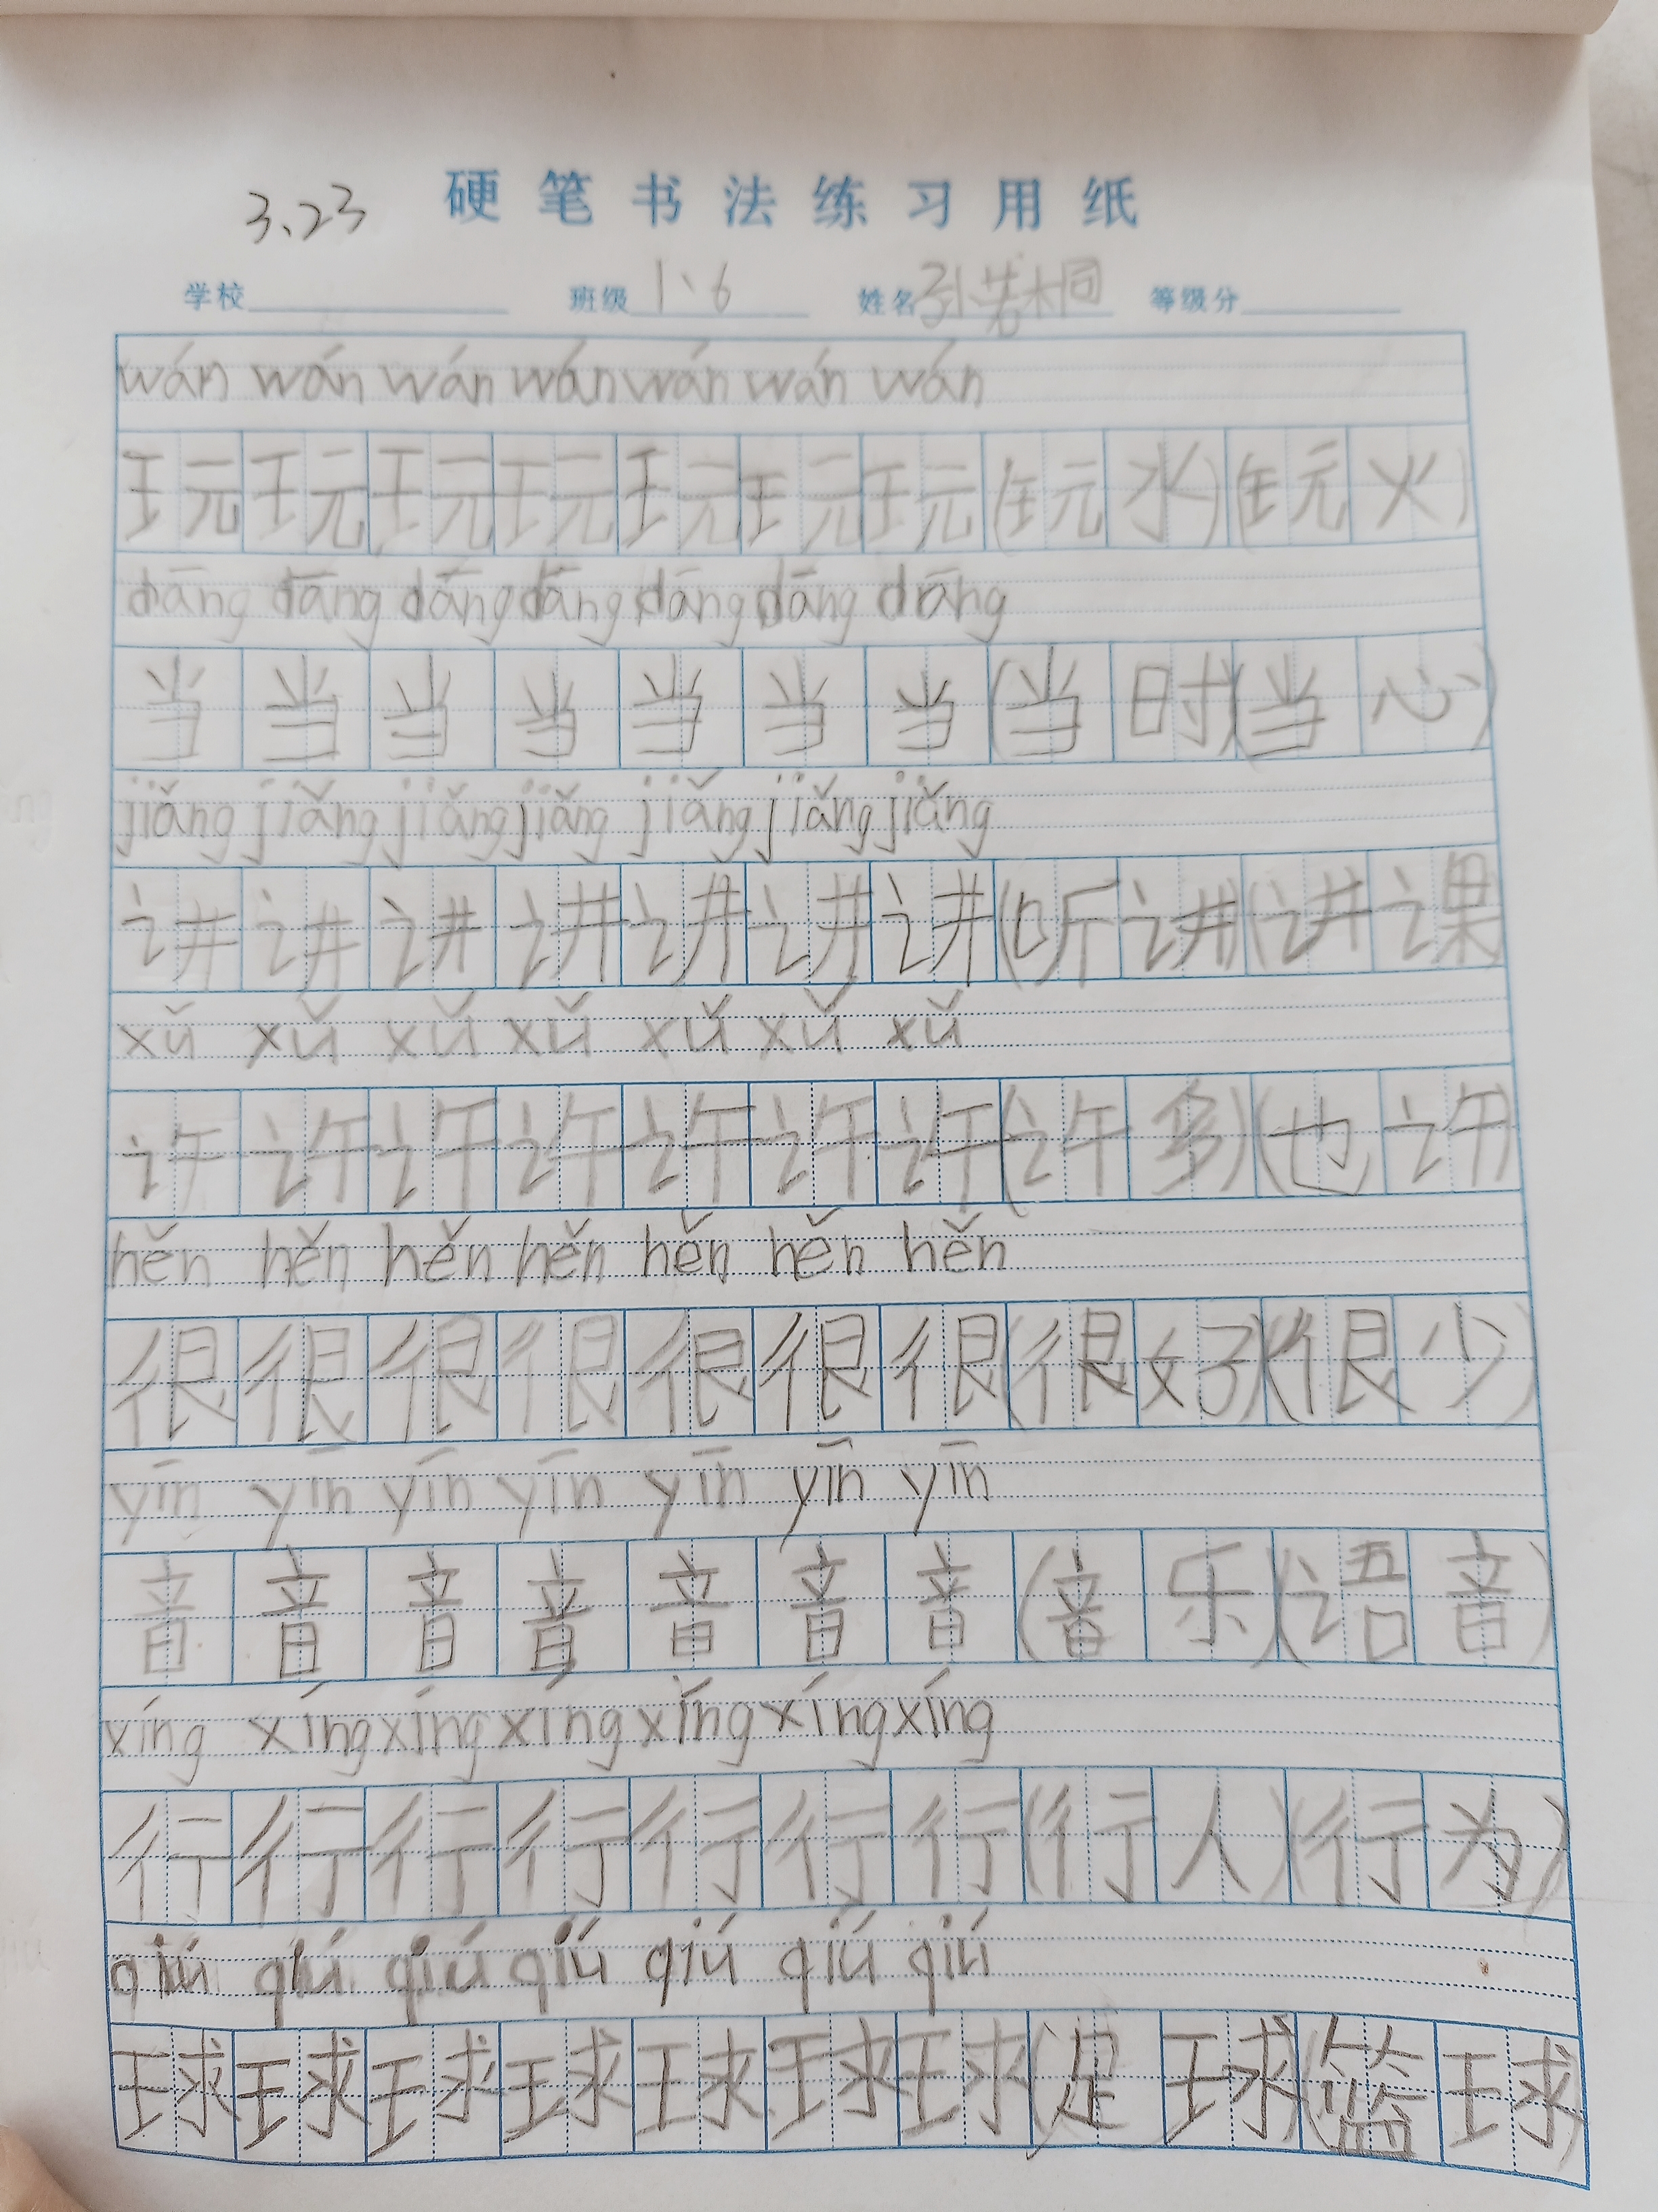 3.23 硬笔书法练习用纸
学校 班级 1、6 姓名 孙若桐 等级分
wán wán wán wán wán wán wán
玩 玩 玩 玩 玩 玩 玩 (玩 水) (玩 火)
dāng dāng dāng dāng dāng dāng dāng
当 当 当 当 当 当 当 (当 时) (当 心)
jiǎng jiǎng jiǎng jiǎng jiǎng jiǎng jiǎng
讲 讲 讲 讲 讲 讲 讲 (听 讲) (讲 课
xǔ xǔ xǔ xǔ xǔ xǔ xǔ
许 许 许 许 许 许 许 (许 多) (也 许)
hěn hěn hěn hěn hěn hěn hěn
很 很 很 很 很 很 很 (很 好) (很 少)
yīn yīn yīn yīn yīn yīn yīn
音 音 音 音 音 音 音 (音 乐) (语 音)
xíng xíng xíng xíng xíng xíng xíng
行 行 行 行 行 行 行 (行 人) (行 为)
qiú qiú qiú qiú qiú qiú qiú
球 球 球 球 球 球 球 (足 球) (篮 球)